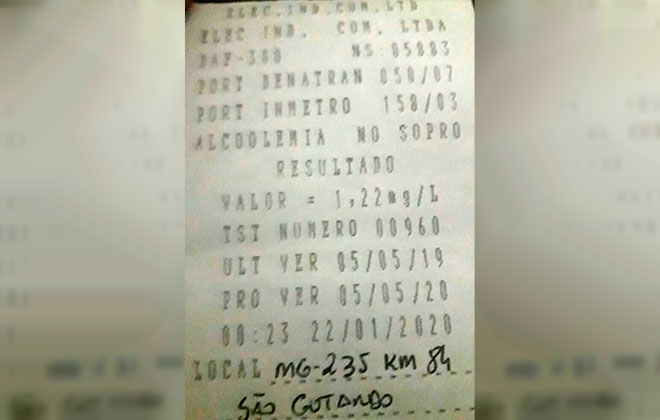 ELEC.IND.COM.LTD
ELEC IND. COM. LTDA
BAF-300 NS:05883
PORT DENATRAN 050/07
PORT INMETRO 158/03
ALCOOLEMIA NO SOPRO
RESULTADO
VALOR = 1,22mg/L
TST NUMERO 00960
ULT VER 05/05/19
PRO VER 05/05/20
08:23 22/01/2020
LOCAL MG-235 KM 84
SÃO GOTARDO